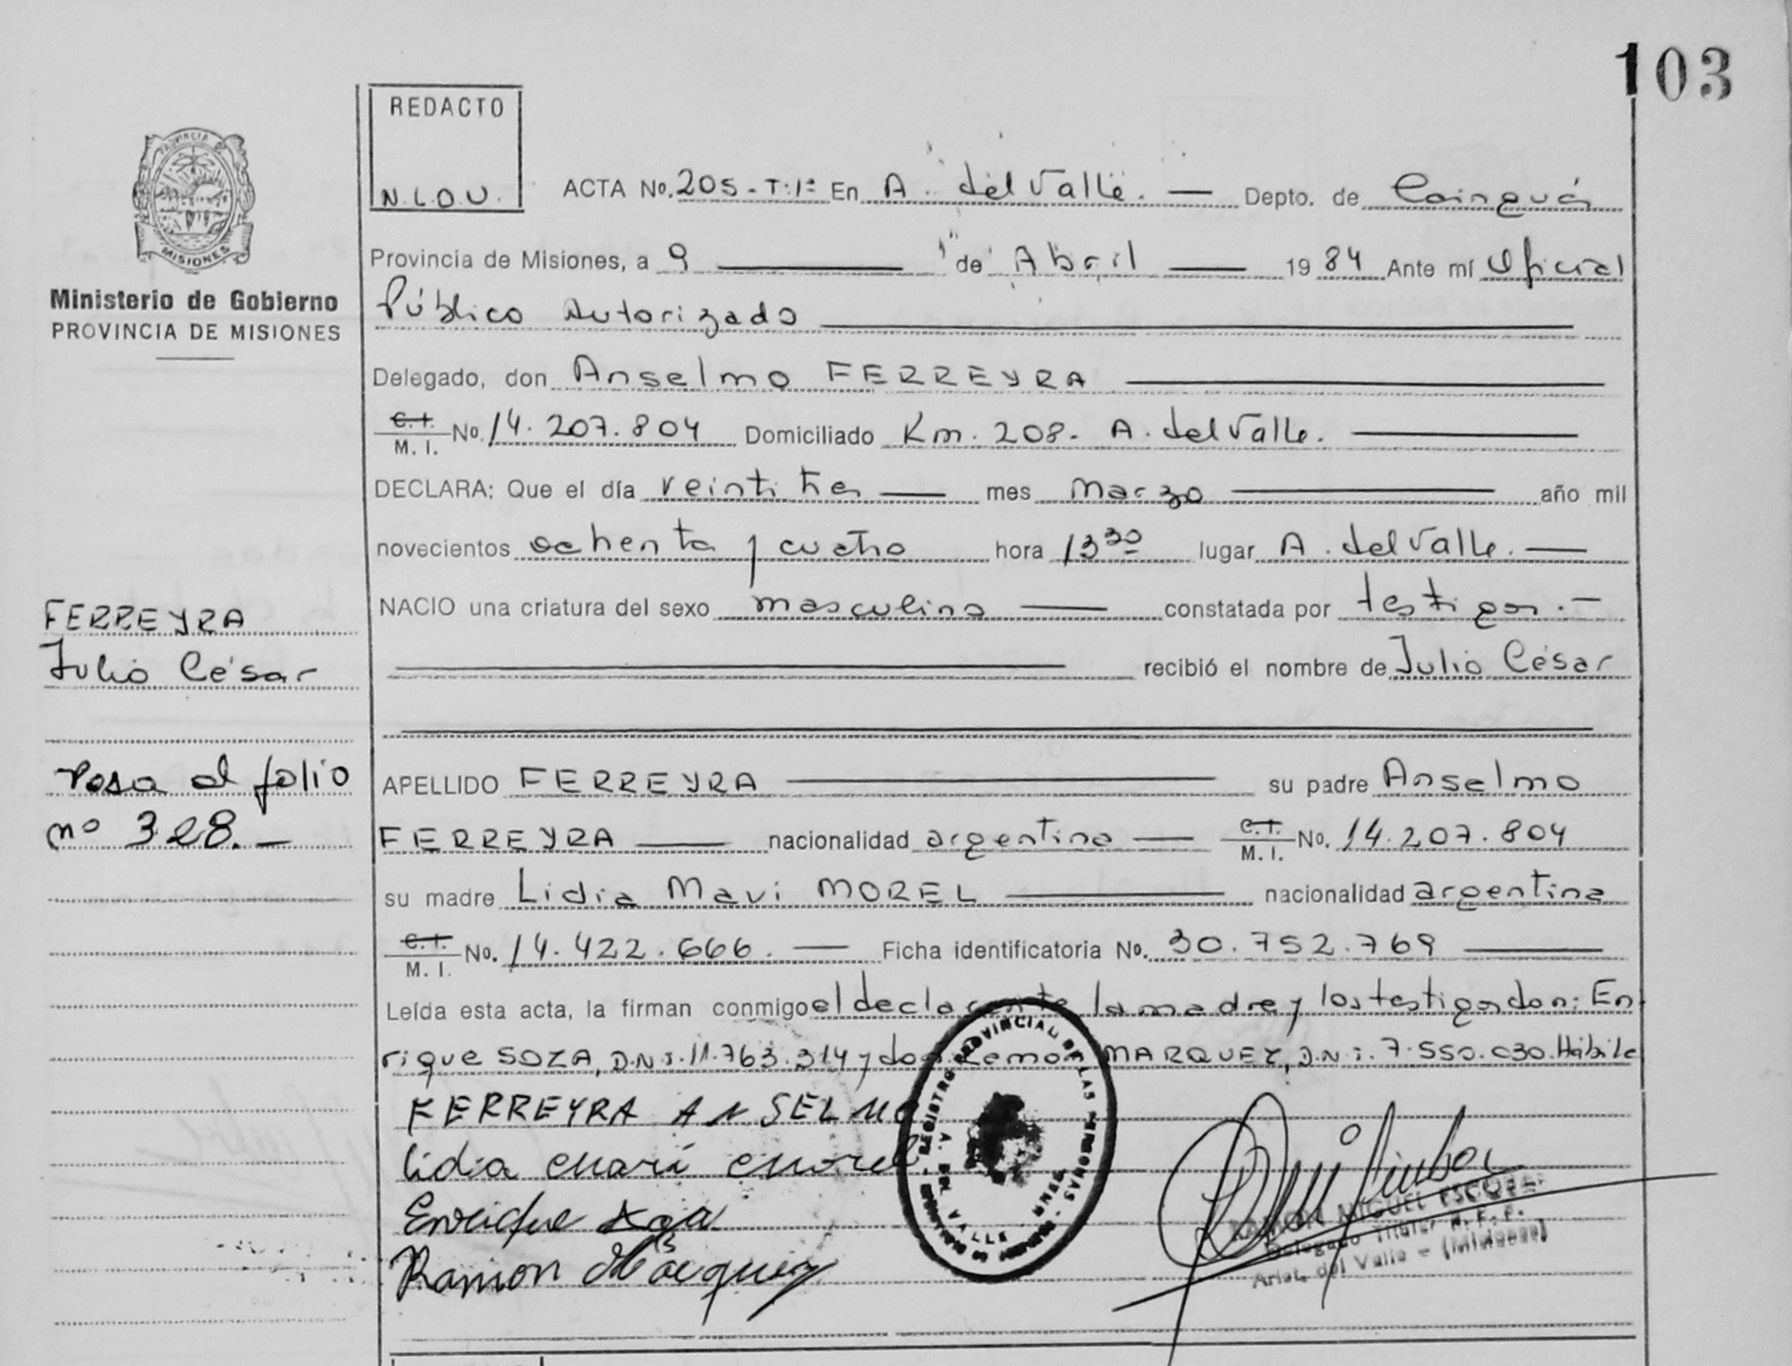 103
REDACTO
N.L.O.U.
ACTA No. 205-T:1º En A. del Valle. — Depto. de Cainguás
Provincia de Misiones, a 9 — de Abril — 1984 Ante mí Oficial
Público Autorizado
Ministerio de Gobierno
PROVINCIA DE MISIONES
Delegado, don Anselmo FERREYRA
C.I. M.I. No. 14.207.804 Domiciliado Km. 208- A. del Valle.
DECLARA: Que el día veintitres — mes Marzo — año mil
novecientos ochenta y cuatro hora 13 30 lugar A. del Valle. —
NACIO una criatura del sexo masculino — constatada por testigos.—
recibió el nombre de Julio César
FERREYRA
Julio César
Pasa al folio
nº 328.—
APELLIDO FERREYRA — su padre Anselmo
FERREYRA — nacionalidad argentina — C.I. M.I. No. 14.207.804
su madre Lidia Mavi MOREL — nacionalidad argentina
C.I. M.I. No. 14.422.666. — Ficha identificatoria No. 30.752.769
Leída esta acta, la firman conmigo el declarante la madre y los testigos don: En
rique SOZA, D.N.I. 11.763.314 y don Remon MARQUEZ, D.N.I. 7.550.030. Hábile
FERREYRA ANSELMO
Lidia Mari Morel
Enrique
Ramon Marquez
REGISTRO PROVINCIAL DE LAS PERSONAS
A. DEL VALLE
MISIONES
RAMON MIGUEL ESCOBAR
Delegado Titular R.P.P.
Arist. del Valle - (Misiones)